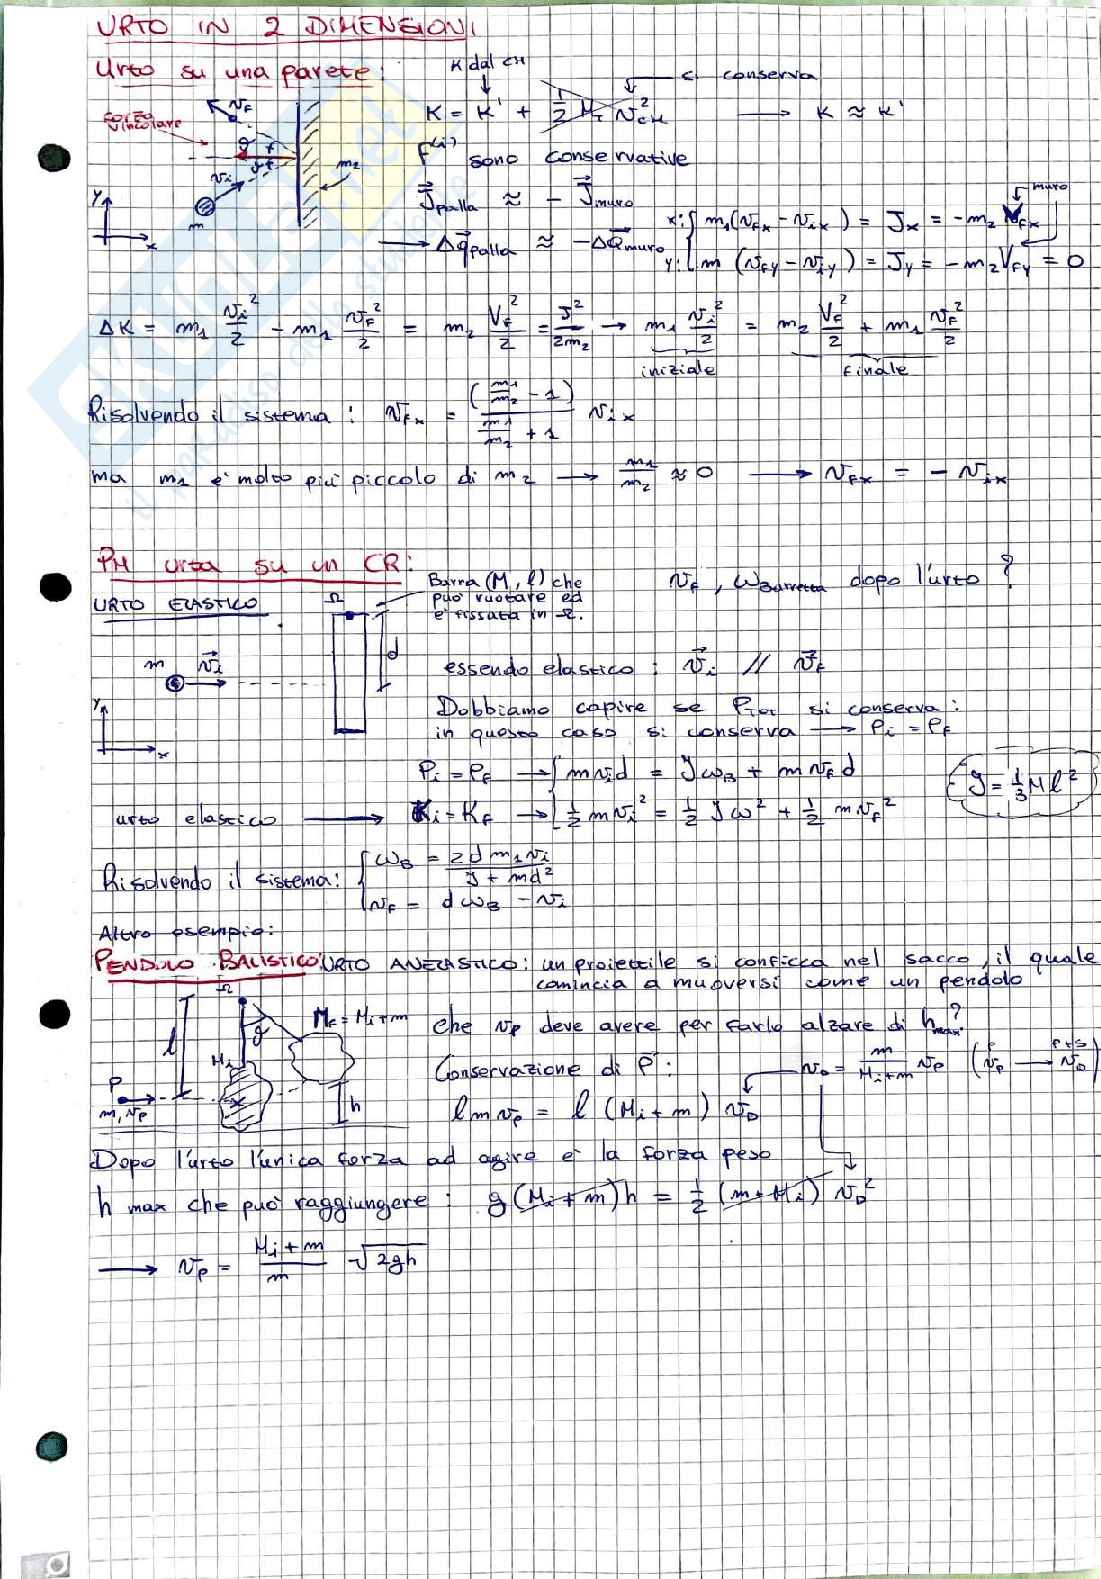 URTO IN 2 DIMENSIONI
Urto su una parete:
K dal CM
si conserva
K = K' + 1/2 M_T v_CM^2 → K ≈ K'
F^(i) sono conservative
vincolare
v_F
v_i
m
m_2
y
x
J_palla ≈ - J_muro
muro
x: { m_1(v_fx - v_ix) = J_x = -m_2 V_fx
→ Δq_palla ≈ -ΔQ_muro
y: { m (v_fy - v_iy) = J_y = -m_2 V_fy = 0
ΔK = m_1 v_i^2/2 - m_1 v_F^2/2 = m_2 V_f^2/2 = J^2/2m_2 → m_1 v_i^2/2 = m_2 V_f^2/2 + m_1 v_F^2/2
iniziale
finale
Risolvendo il sistema: v_fx = (m_1/m_2 - 1)/(m_1/m_2 + 1) v_ix
ma m_1 è molto più piccolo di m_2 → m_1/m_2 ≈ 0 → v_fx = - v_ix
PM urta su un CR:
URTO ELASTICO
Barra (M, l) che
può ruotare ed
è fissata in Ω.
v_F, ω_barretta dopo l'urto?
Ω
d
m
v_i
y
x
essendo elastico: v_i // v_F
Dobbiamo capire se P_TOT si conserva:
in questo caso si conserva → P_i = P_F
P_i = P_F → { m v_i d = J ω_B + m v_F d
J = 1/3 M l^2
urto elastico → K_i = K_F → { 1/2 m v_i^2 = 1/2 J ω^2 + 1/2 m v_F^2
Risolvendo il sistema: { ω_B = 2 d m_1 v_i / (J + m d^2)
{ v_F = d ω_B - v_i
Altro esempio:
PENDOLO BALISTICO: URTO ANELASTICO: un proiettile si conficca nel sacco, il quale
comincia a muoversi come un pendolo
Ω
l
M_F = M_i + m
M_i
P
m, v_P
h
che v_P deve avere per farlo alzare di h_max?
Conservazione di P:
v_0 = m/(M_i + m) v_P (v_P → v_0)
l m v_P = l (M_i + m) v_0
Dopo l'urto l'unica forza ad agire è la forza peso
h max che può raggiungere: g (M_i + m) h = 1/2 (m + M_i) v_0^2
→ v_P = (M_i + m)/m √2gh